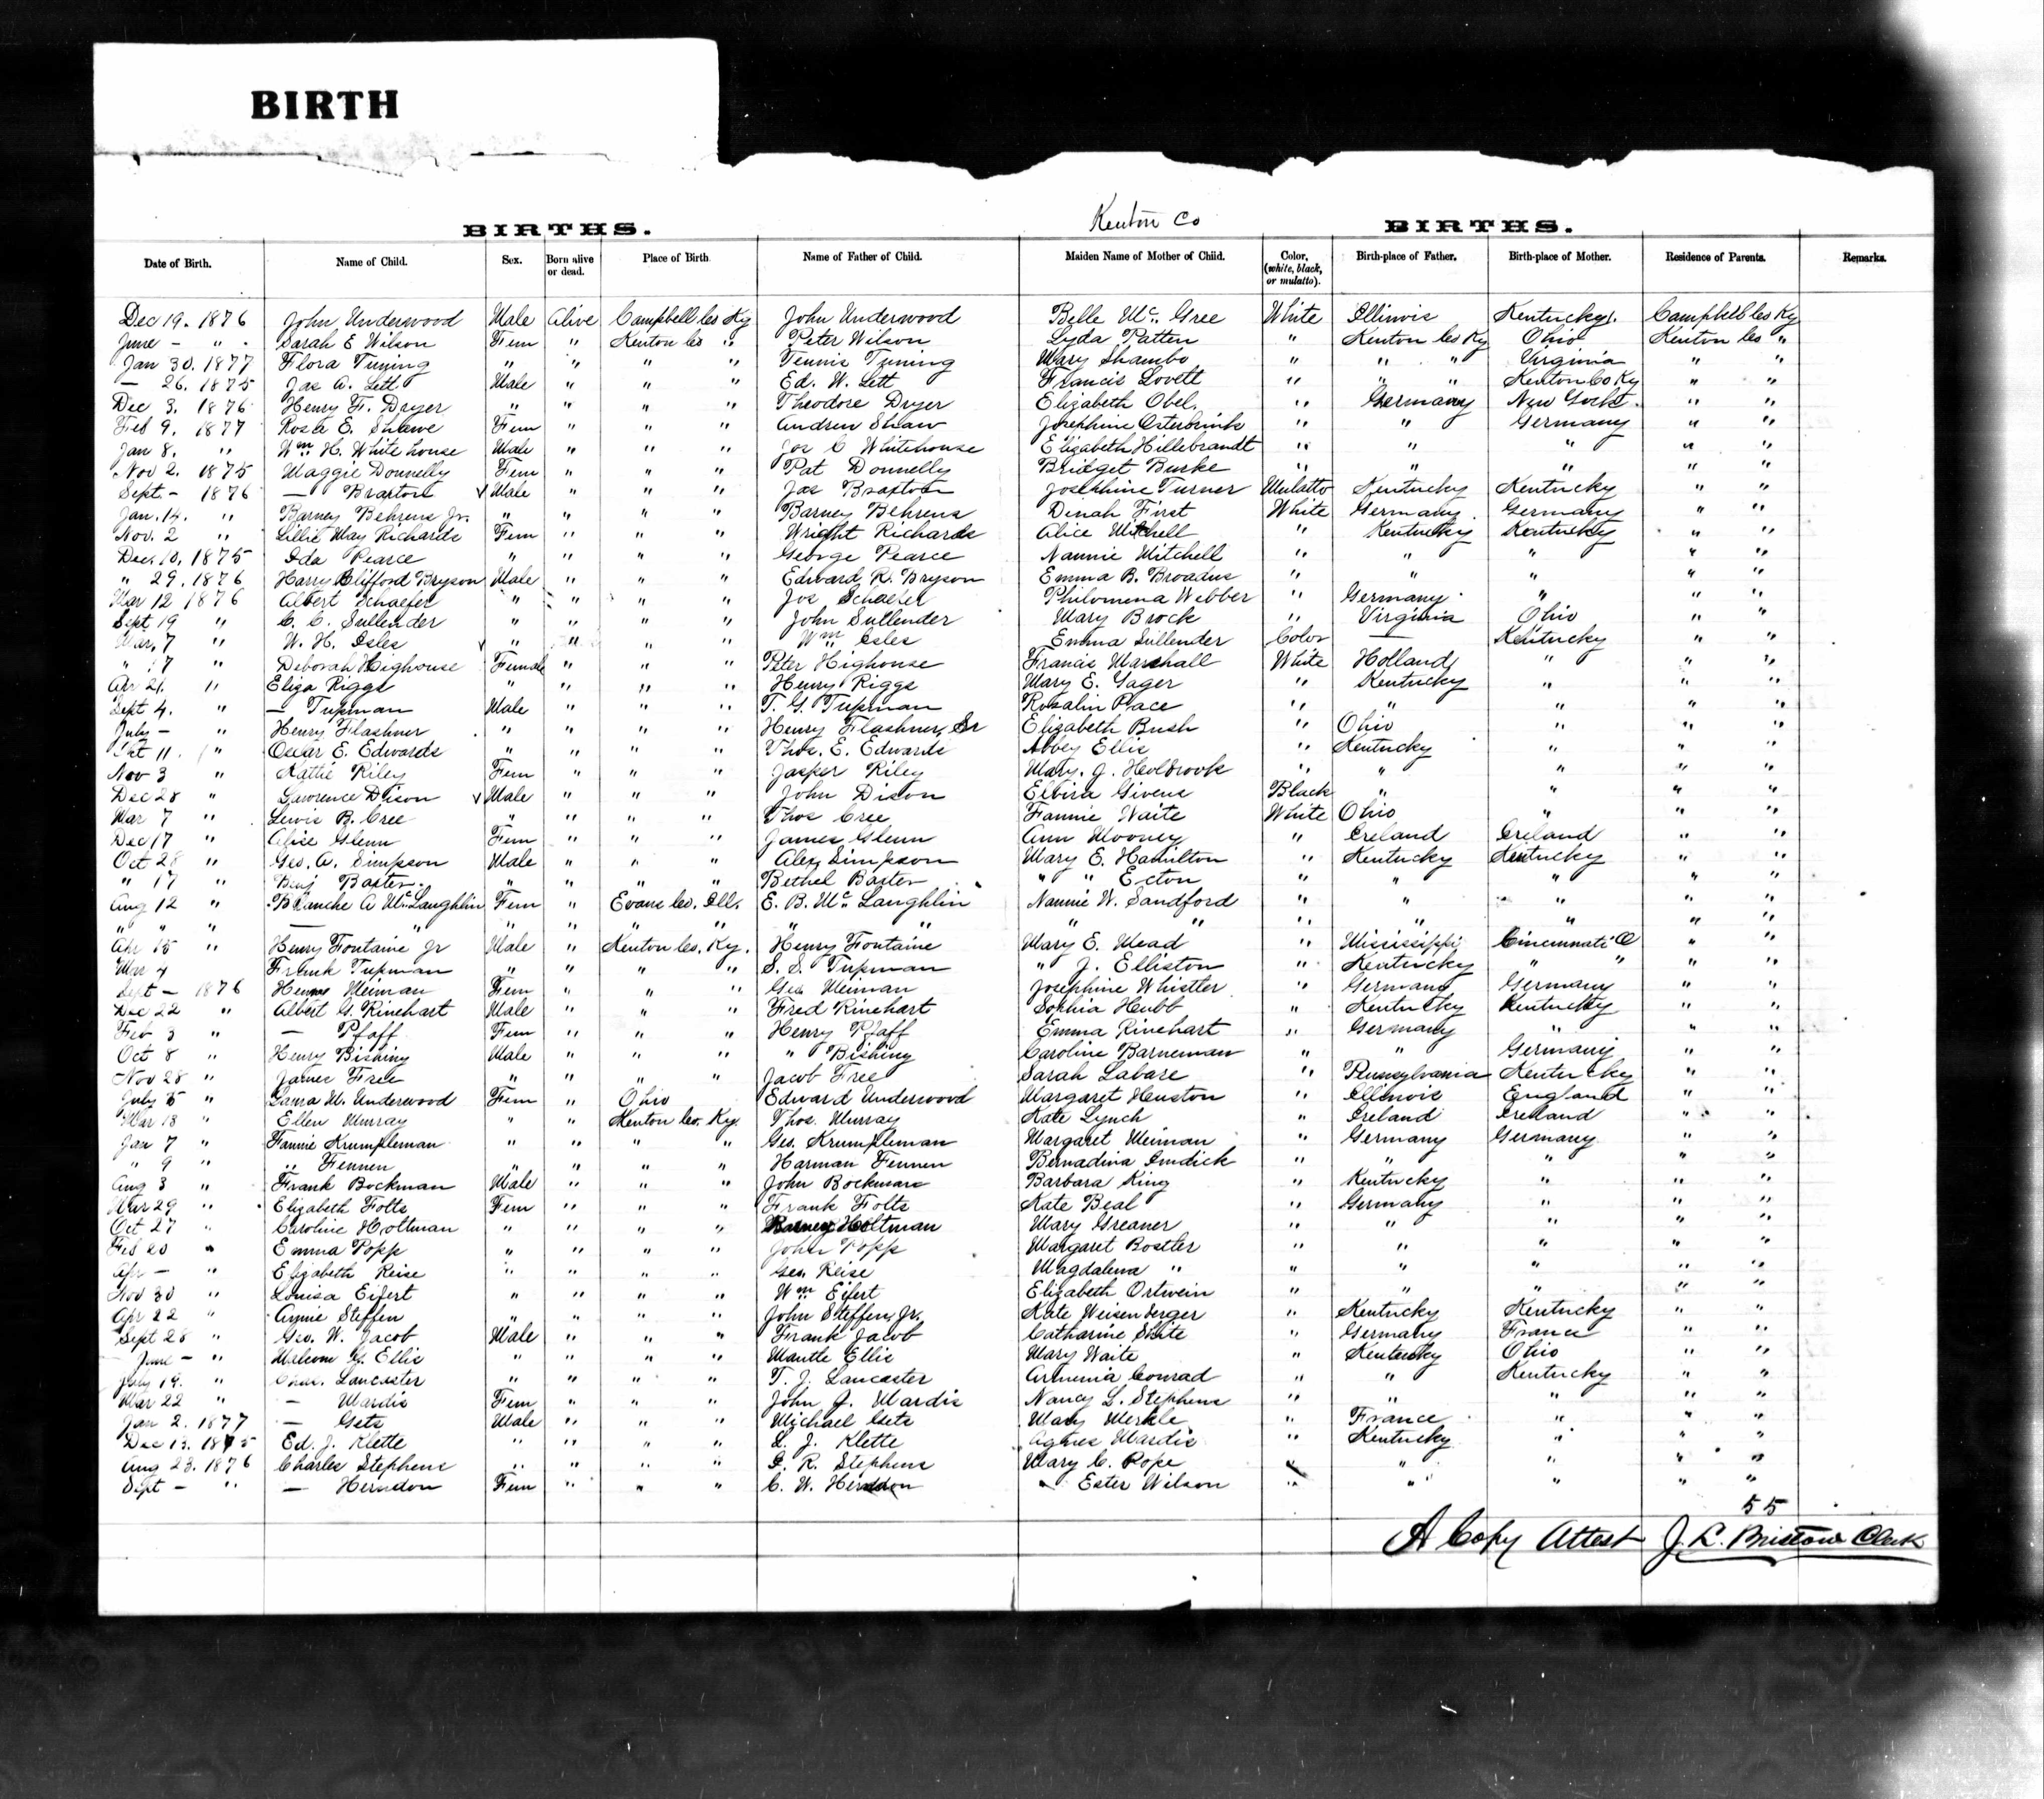 BIRTH
Kenton Co
BIRTHS. BIRTHS.
Date of Birth. Name of Child. Sex. Born alive or dead. Place of Birth Name of Father of Child. Maiden Name of Mother of Child. Color, (white, black, or mulatto). Birth-place of Father. Birth-place of Mother. Residence of Parents. Remarks.
Dec 19. 1876 John Underwood Male Alive Campbell Co Ky John Underwood Belle Mc. Gree White Illinois Kentucky. Campbell Co Ky
June - " Sarah E Wilson Fem " Kenton Co " Peter Wilson Lyda Patten " Kenton Co Ky Ohio Kenton Co "
Jan 30. 1877 Flora Tuning " " " " Tennis Tuning Mary Shambo " " " Virginia " "
- 26. 1875 Jas A. Lett Male " " " Ed. W. Lett Francis Lovett " " " Kenton Co Ky " "
Dec 3. 1876 Henry F. Dryer " " " " Theodore Dryer Elizabeth Obel " Germany New York " "
Feb 9. 1877 Rosa E. Shawe Fem " " " Andrew Shaw Josephine Osterbrink " " Germany " "
Jan 8. " Wm H. White house Male " " " Jos C Whitehouse Elizabeth Hillebrandt " " " " "
Nov 2. 1875 Maggie Donnelly Fem " " " Pat Donnelly Bridget Burke " " " " "
Sept - 1876 — Braxton Male " " " Jas Braxton Josephine Turner Mulatto Kentucky Kentucky " "
Jan. 14. " Barney Behrens Jr. " " " " Barney Behrens Dinah First White Germany Germany " "
Nov. 2 " Lillie May Richards Fem " " " Wright Richards Alice Mitchell " Kentucky Kentucky " "
Dec. 10. 1875 Ida Pearce " " " " George Pearce Nannie Mitchell " " " " "
" 29. 1876 Harry Clifford Bryson Male " " " Edward R. Bryson Emma B. Broadus " " " " "
Mar 12 1876 Albert Schaefer " " " " Jos Schaefer Philomena Webber " Germany " " "
Sept 19 " C. C. Sullender " " " " John Sullender Mary Brock " Virginia Ohio " "
Mar, 7 " W. H. Isles " " " " Wm Isles Emma Sullender Color — Kentucky " "
" 17 " Deborah Highouse Female " " " Peter Highouse Francis Marshall White Holland " " "
Apr 21. " Eliza Riggs " " " " Henry Riggs Mary E. Yager " Kentucky " " "
Sept 4. " — Tupman Male " " " T. G. Tupman Rosalin Place " " " " "
July - " Henry Flashner " " " " Henry Flashner, Sr Elizabeth Bush " Ohio " " "
Oct 11. " Oscar E. Edwards " " " " Thos. E. Edwards Abbey Ellis " Kentucky " " "
Nov 3 " Kattie Riley Fem " " " Jasper Riley Mary. J. Holbrook " " " " "
Dec 28 " Lawrence Dison Male " " " John Dison Elvira Givens Black " " " "
Mar 7 " Lewis B. Cree " " " " Thos Cree Fannie Waite White Ohio " " "
Dec 17 " Alice Glenn Fem " " " James Glenn Ann Mooney " Ireland Ireland " "
Oct 28 " Geo. A. Simpson Male " " " Alex Simpson Mary E. Hamilton " Kentucky Kentucky " "
" 17 " Benj Baxter " " " " Bethel Baxter " " Ecton " " " " "
Aug 12 " Blanche A McLaughlin Fem " Evans Co. Ill. E. B. Mc Laughlin Nannie W. Sandford " " " " "
" " " — " " " " " " " " " " " " " "
Apr 15 " Henry Fontaine Jr Male " Kenton Co. Ky. Henry Fontaine Mary E. Mead " Mississippi Cincinnati O " "
Mar 4 Frank Tupman " " " " S. S. Tupman " J. Elliston " Kentucky " " " "
Sept - 1876 Meiman Fem " " " Geo Meiman Josephine Whistler " Germany Germany " "
Dec 22 " Albert G. Rinehart Male " " " Fred Rinehart Sophia Hubb " Kentucky Kentucky " "
Feb 3 " — Pfaff Fem " " " Henry Pfaff Emma Rinehart " Germany " " "
Oct 8 " Henry Bishing Male " " " " Bishing Caroline Barneman " " Germany " "
Nov 28 " James Free " " " " Jacob Free Sarah Labare " Pennsylvania Kentucky " "
July 5 " Laura M. Underwood Fem " Ohio Edward Underwood Margaret Huston " Illinois England " "
Mar 13 " Ellen Murray " " Kenton Co. Ky. Thos. Murray Kate Lynch " Ireland Ireland " "
Jan 7 " Fannie Krumpleman " " " " Geo. Krumpleman Margaret Meiman " Germany Germany " "
" 9 " " Fennen " " " " Harman Fennen Bernadina " " " " "
Aug 3 " Frank Bockman Male " " " John Bockman Barbara King " Kentucky " " "
Mar 29 " Elizabeth Folts Fem " " " Frank Folts Kate Beal " Germany " " "
Oct 27 " Caroline Holtman " " " " Barney Holtman Mary Greaner " " " " "
Feb 20 " Emma Popp " " " " John Popp Margaret Bostler " " " " "
Apr - " Elizabeth Reise " " " " Geo. Reise Magdalena " " " " " "
Nov 30 " Louisa Eifert " " " " Wm Eifert Elizabeth Ortwein " " " " "
Apr 22 " Annie Steffen " " " " John Steffen, Jr. Kate Weisenberger " Kentucky Kentucky " "
Sept 28 " Geo. W. Jacob Male " " " Frank Jacob Catharine " Germany France " "
June - " Malcom G. Ellis " " " " Mantle Ellis Mary Waite " Kentucky Ohio " "
July 19. " Chas. Lancaster " " " " T. J. Lancaster Armenia Conrad " " Kentucky " "
Mar 22 " — Mardis Fem " " " John J. Mardis Nancy L. Stephens " " " " "
Jan 2. 1877 — Gets Male " " " Michael Gets Mary Merkle " France " " "
Dec 13. 1875 Ed. J. Klette " " " " L. J. Klette Agnes Mardis " Kentucky " " "
Aug 23. 1876 Charles Stephens " " " " R. Stephens Mary C. Pope " " " " "
Sept - " — Herndon Fem " " " C. W. Herndon " Ester Wilson " " " " "
55
A Copy Attest J. L. Bristow Clerk